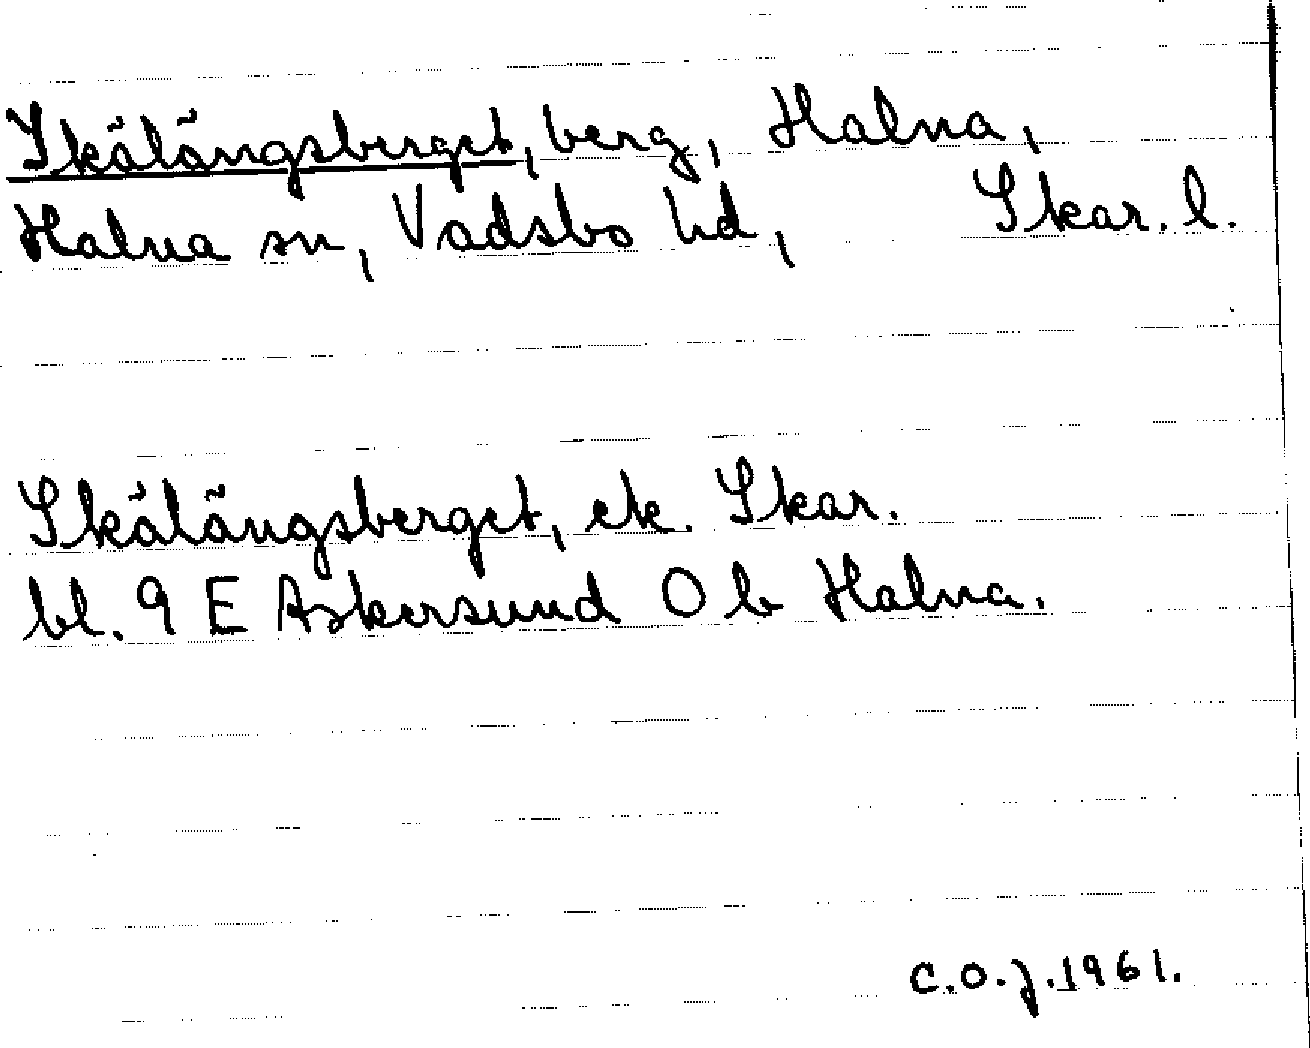 Skålängsberget, berg, Halna,
Halna sn, Vadsbo hd, Skar. l.
Skålängsberget, ek. Skar.
bl. 9 E Askersund O b Halna.
C.O.J. 1961.